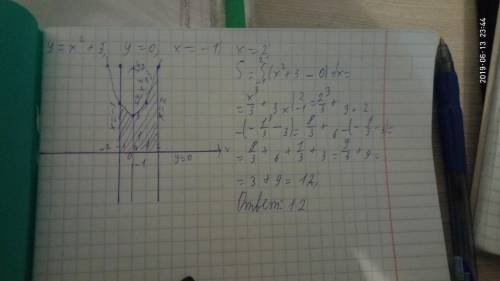 y = x² + 3, y = 0, x = -1 x = 2
S = ∫(x² + 3 - 0) dx =
= x³/3 + 3x |²₋₁ = 2³/3 + 3 · 2
-(-1/3 - 3) = 8/3 + 6 - (-1/3 - 3) =
= 8/3 + 6 + 1/3 + 3 = 9/3 + 9 =
= 3 + 9 = 12
Ответ: 12
x = -1
x = 2
-2
0
-1
y = 0
x
2019-06-13 23:44